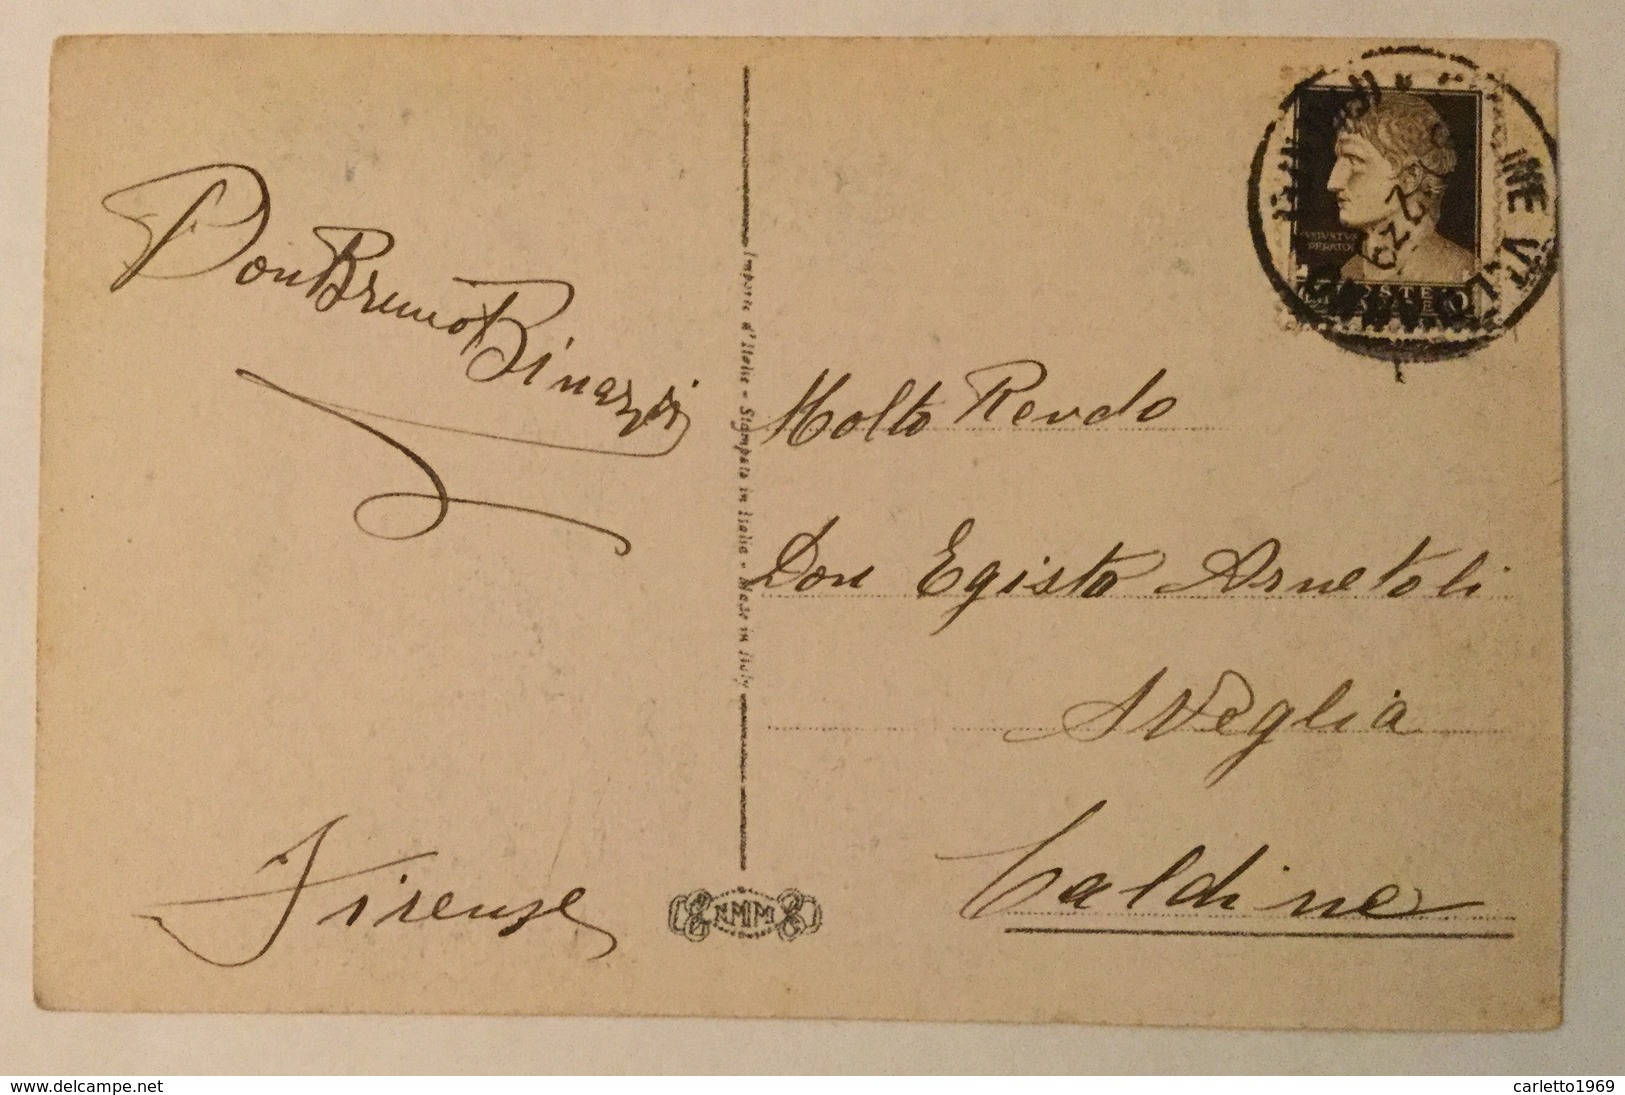 Don Bruno Binazzi
Firenze
Importé d'Italie - Stampato in Italia - Made in Italy
NMM
Molto Revdo
Don Egisto Arnetoli
Sveglia
Caldine
POSTE
www.delcampe.net
carletto1969